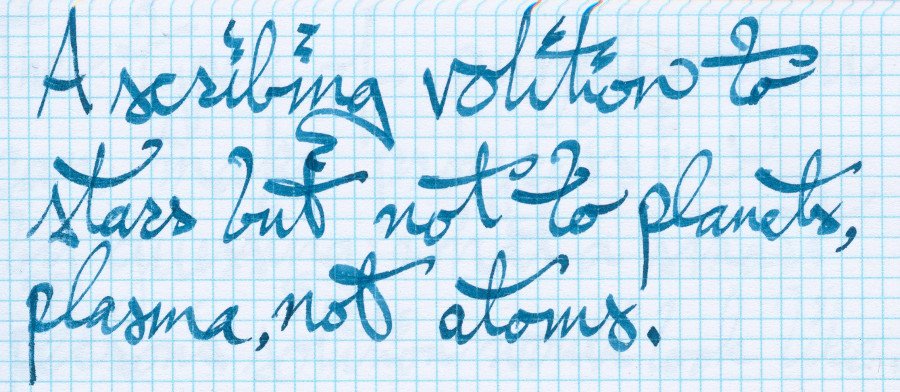 Ascribing volition to
stars but not to planets,
plasma, not atoms.